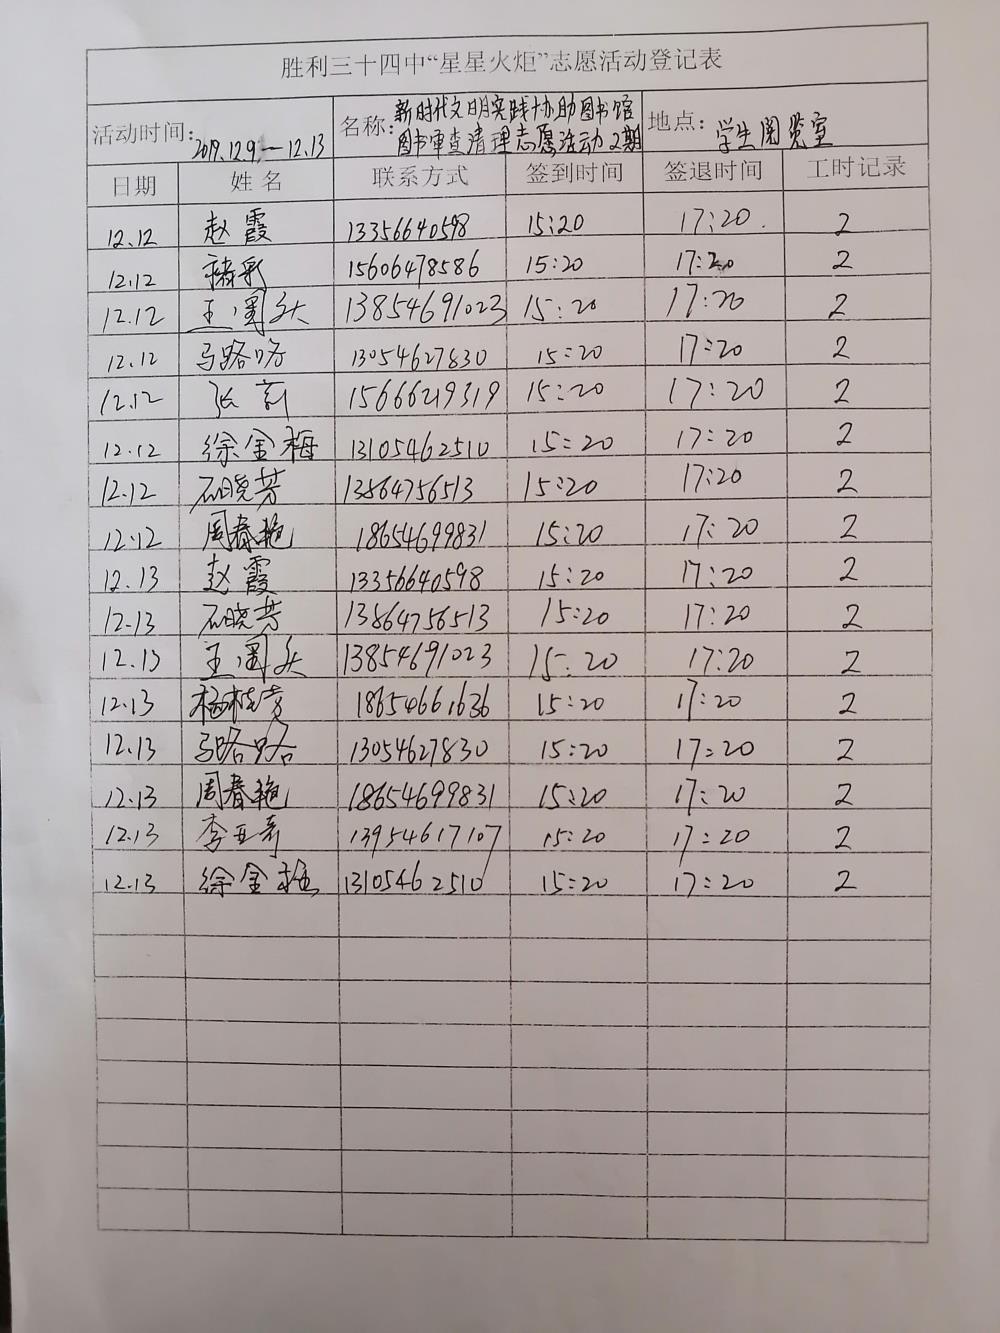 胜利三十四中“星星火炬”志愿活动登记表
活动时间: 2019.12.9.—12.13 名称: 新时代文明实践协助图书馆图书审查清理志愿活动2期 地点: 学生阅览室
日期 姓名 联系方式 签到时间 签退时间 工时记录
12.12 赵霞 13356640598 15:20 17:20 2
12.12 15606478586 15:20 17:20 2
12.12 王 13854691023 15:20 17:20 2
12.12 马路路 13054627830 15:20 17:20 2
12.12 张 15666219319 15:20 17:20 2
12.12 徐金梅 13105462510 15:20 17:20 2
12.12 石晓芳 13864756513 15:20 17:20 2
12.12 周春艳 18654699831 15:20 17:20 2
12.13 赵霞 13356640598 15:20 17:20 2
12.13 石晓芳 13864756513 15:20 17:20 2
12.13 王 13854691023 15:20 17:20 2
12.13 杨桂 18654661636 15:20 17:20 2
12.13 马路路 13054627830 15:20 17:20 2
12.13 周春艳 18654699831 15:20 17:20 2
12.13 李亚奇 13954617107 15:20 17:20 2
12.13 徐金梅 13105462510 15:20 17:20 2